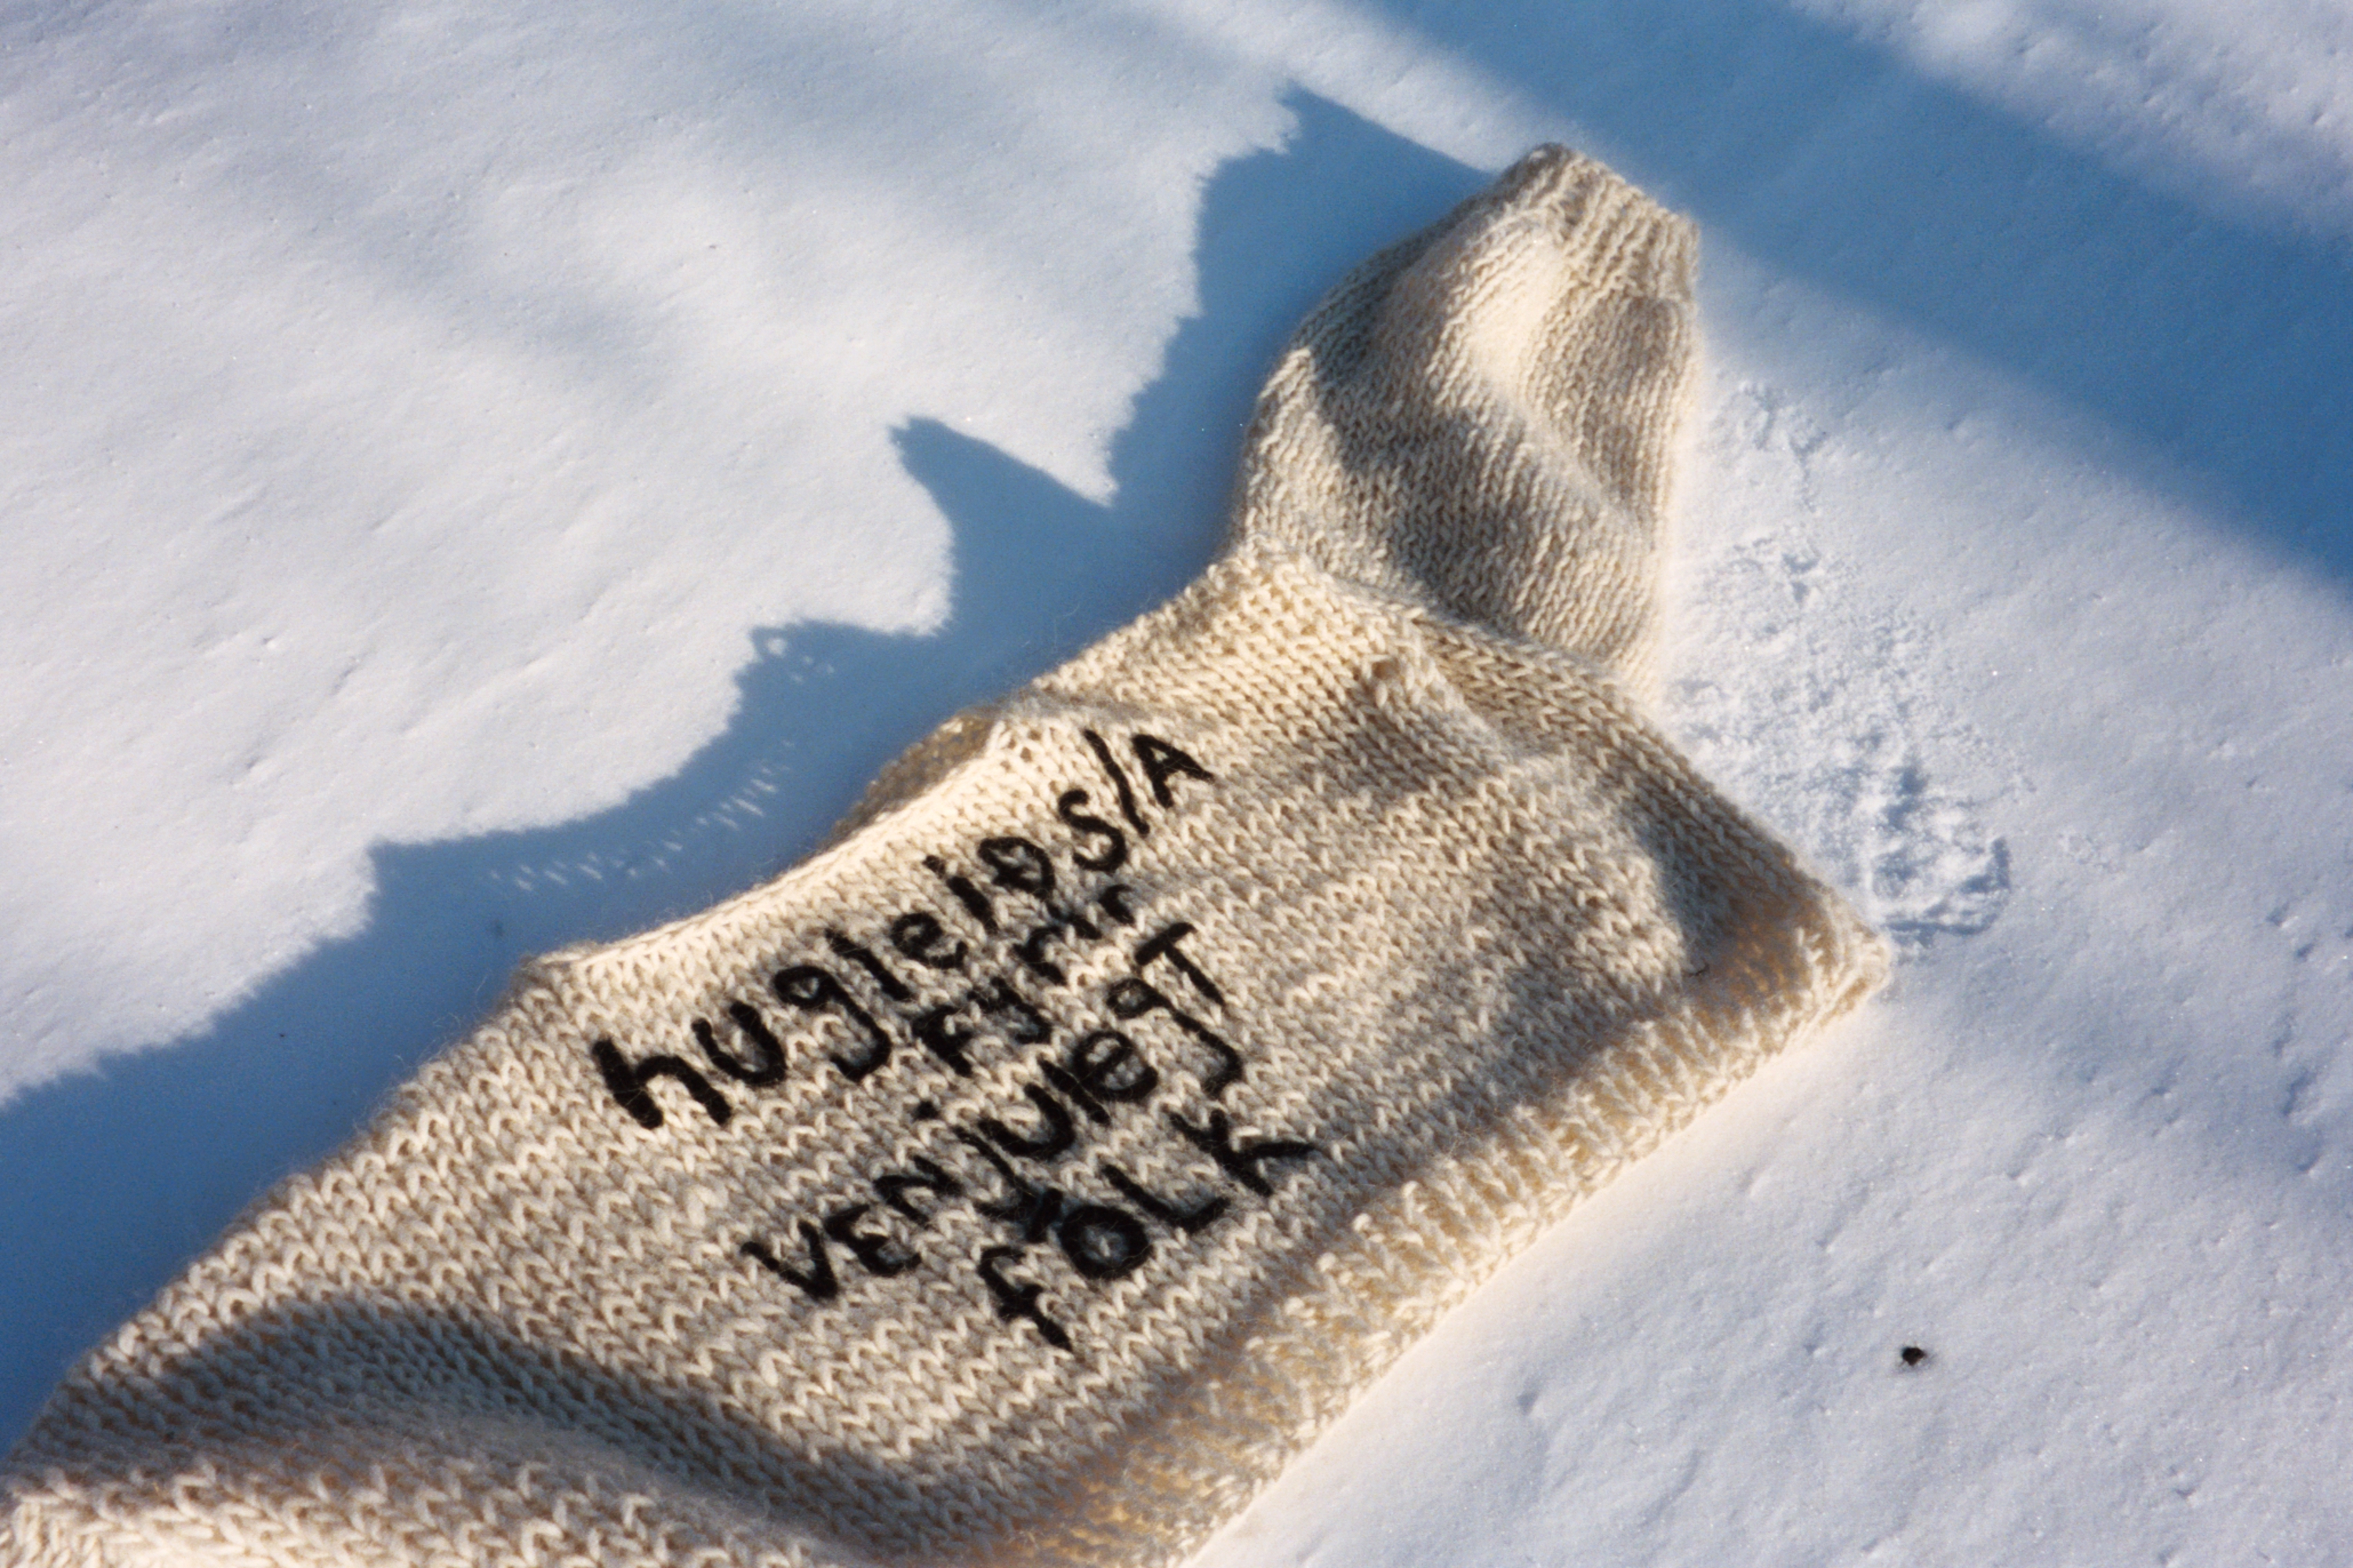 hugleiðs/A
FYrir
VENJULEGT
FÓLK